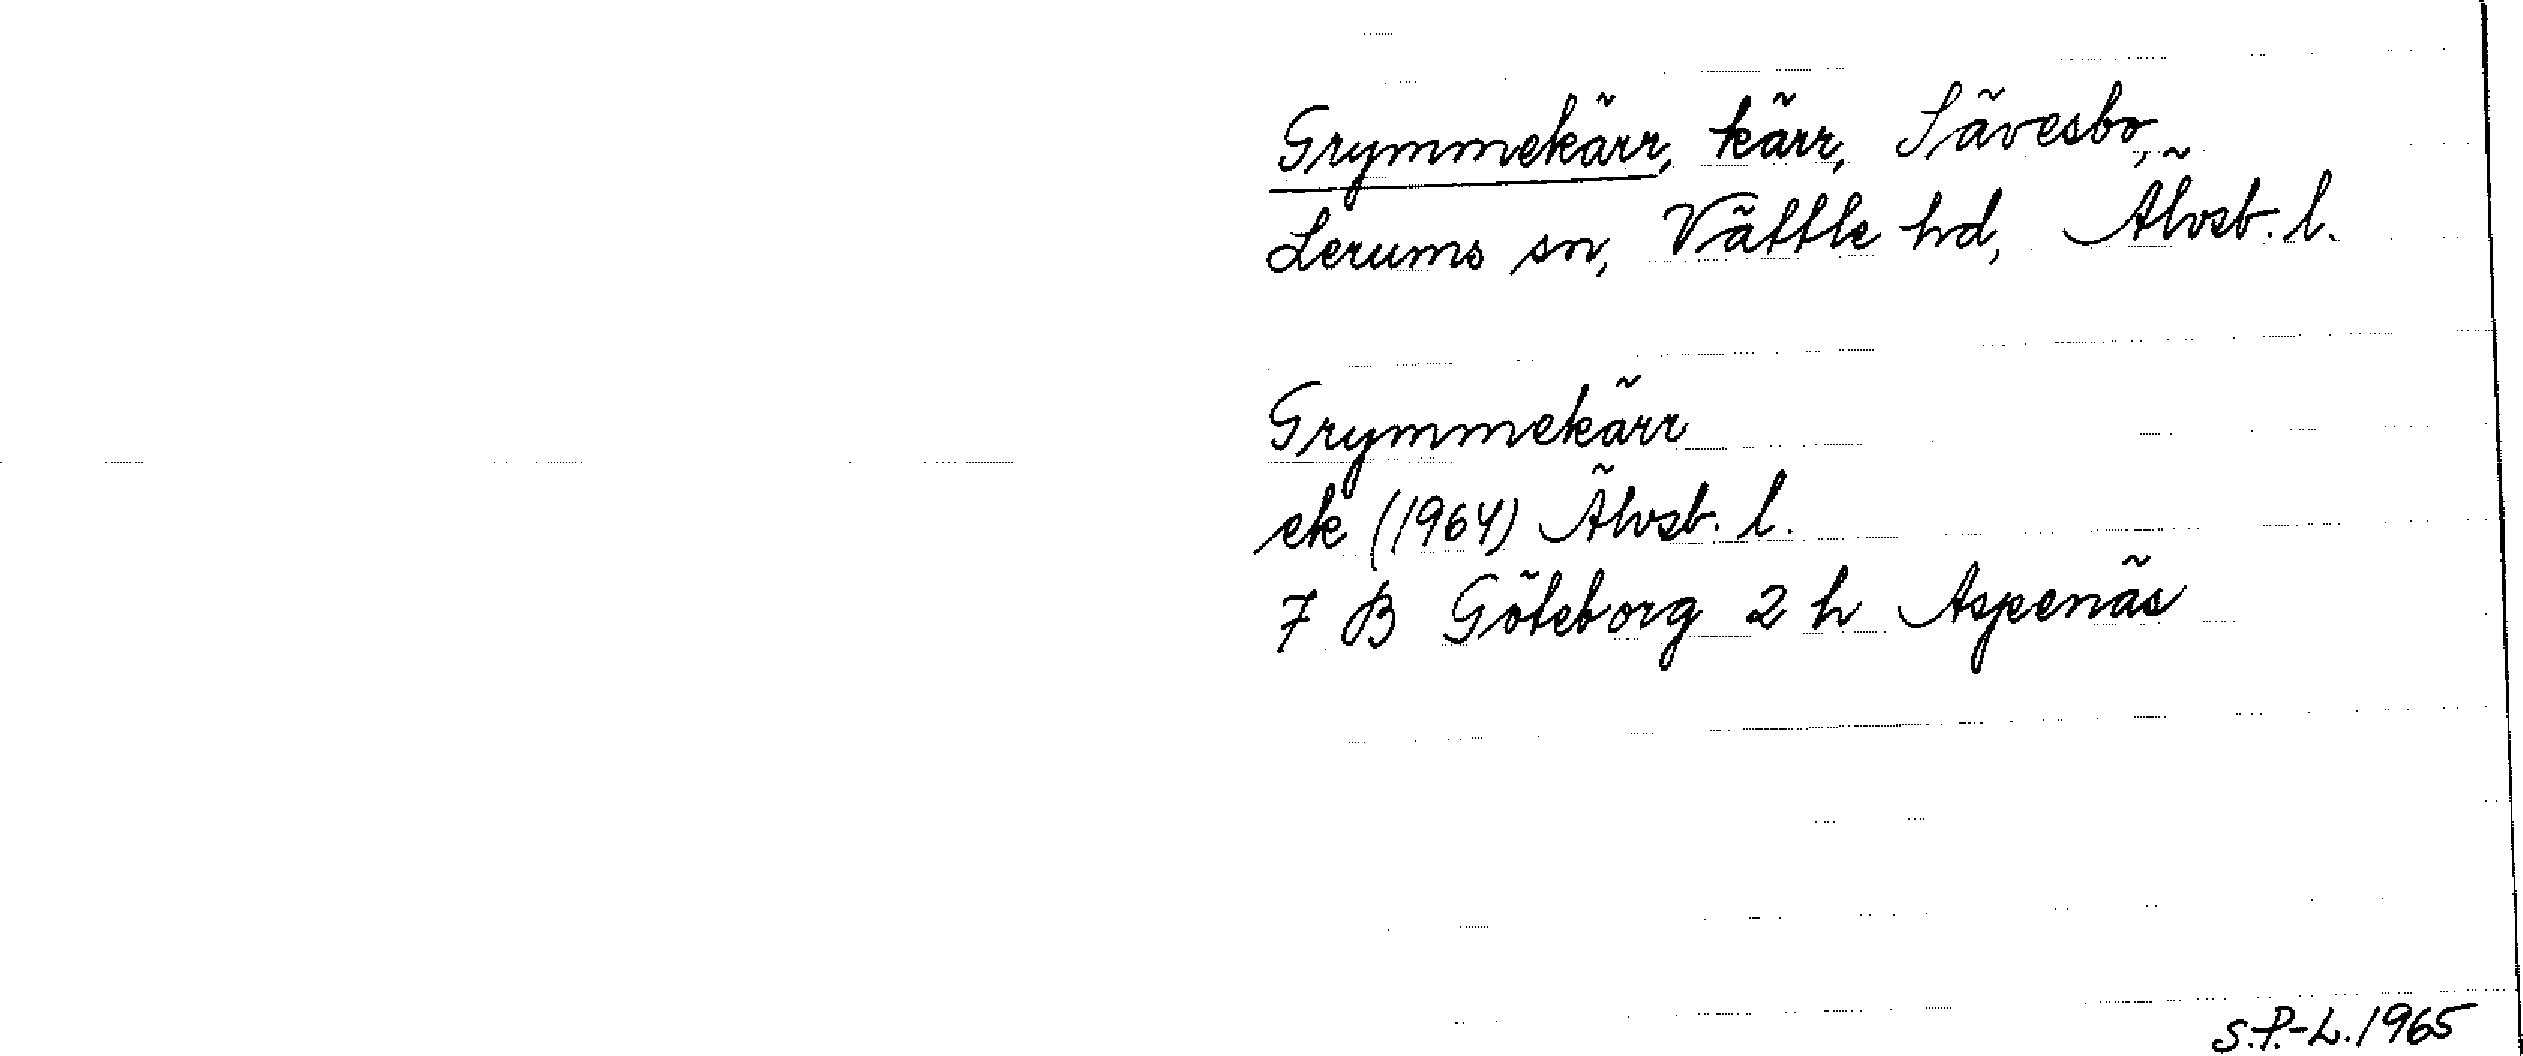 Grymmekärr, kärr, Sävesbo,
Lerums sn, Vättle hd, Älvsb. l.
Grymmekärr
ek (1964) Älvsb. l.
7 B Göteborg 2 h Aspenäs
S.P.-L. 1965